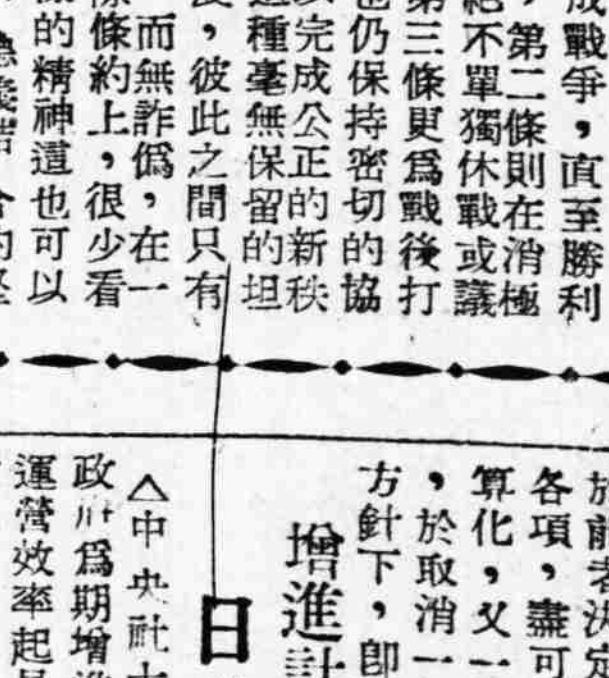 成戰爭，直至勝利
，第二條則在消極
絕不單獨休戰或議
第三條更爲戰後打
也仍保持密切的協
以完成公正的新秩
這種毫無保留的坦
，彼此之間只有
而無詐僞，在一
條約上，很少看
的精神這也可以
於前者決定
各項，盡可
算化，又一
，於取消一
方針下，卽
增進計
日
△中央社
政府爲期增進
運營效率起見